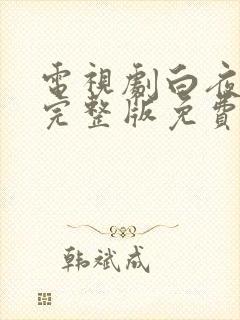 電視劇白夜
完整版免費
韩斌成